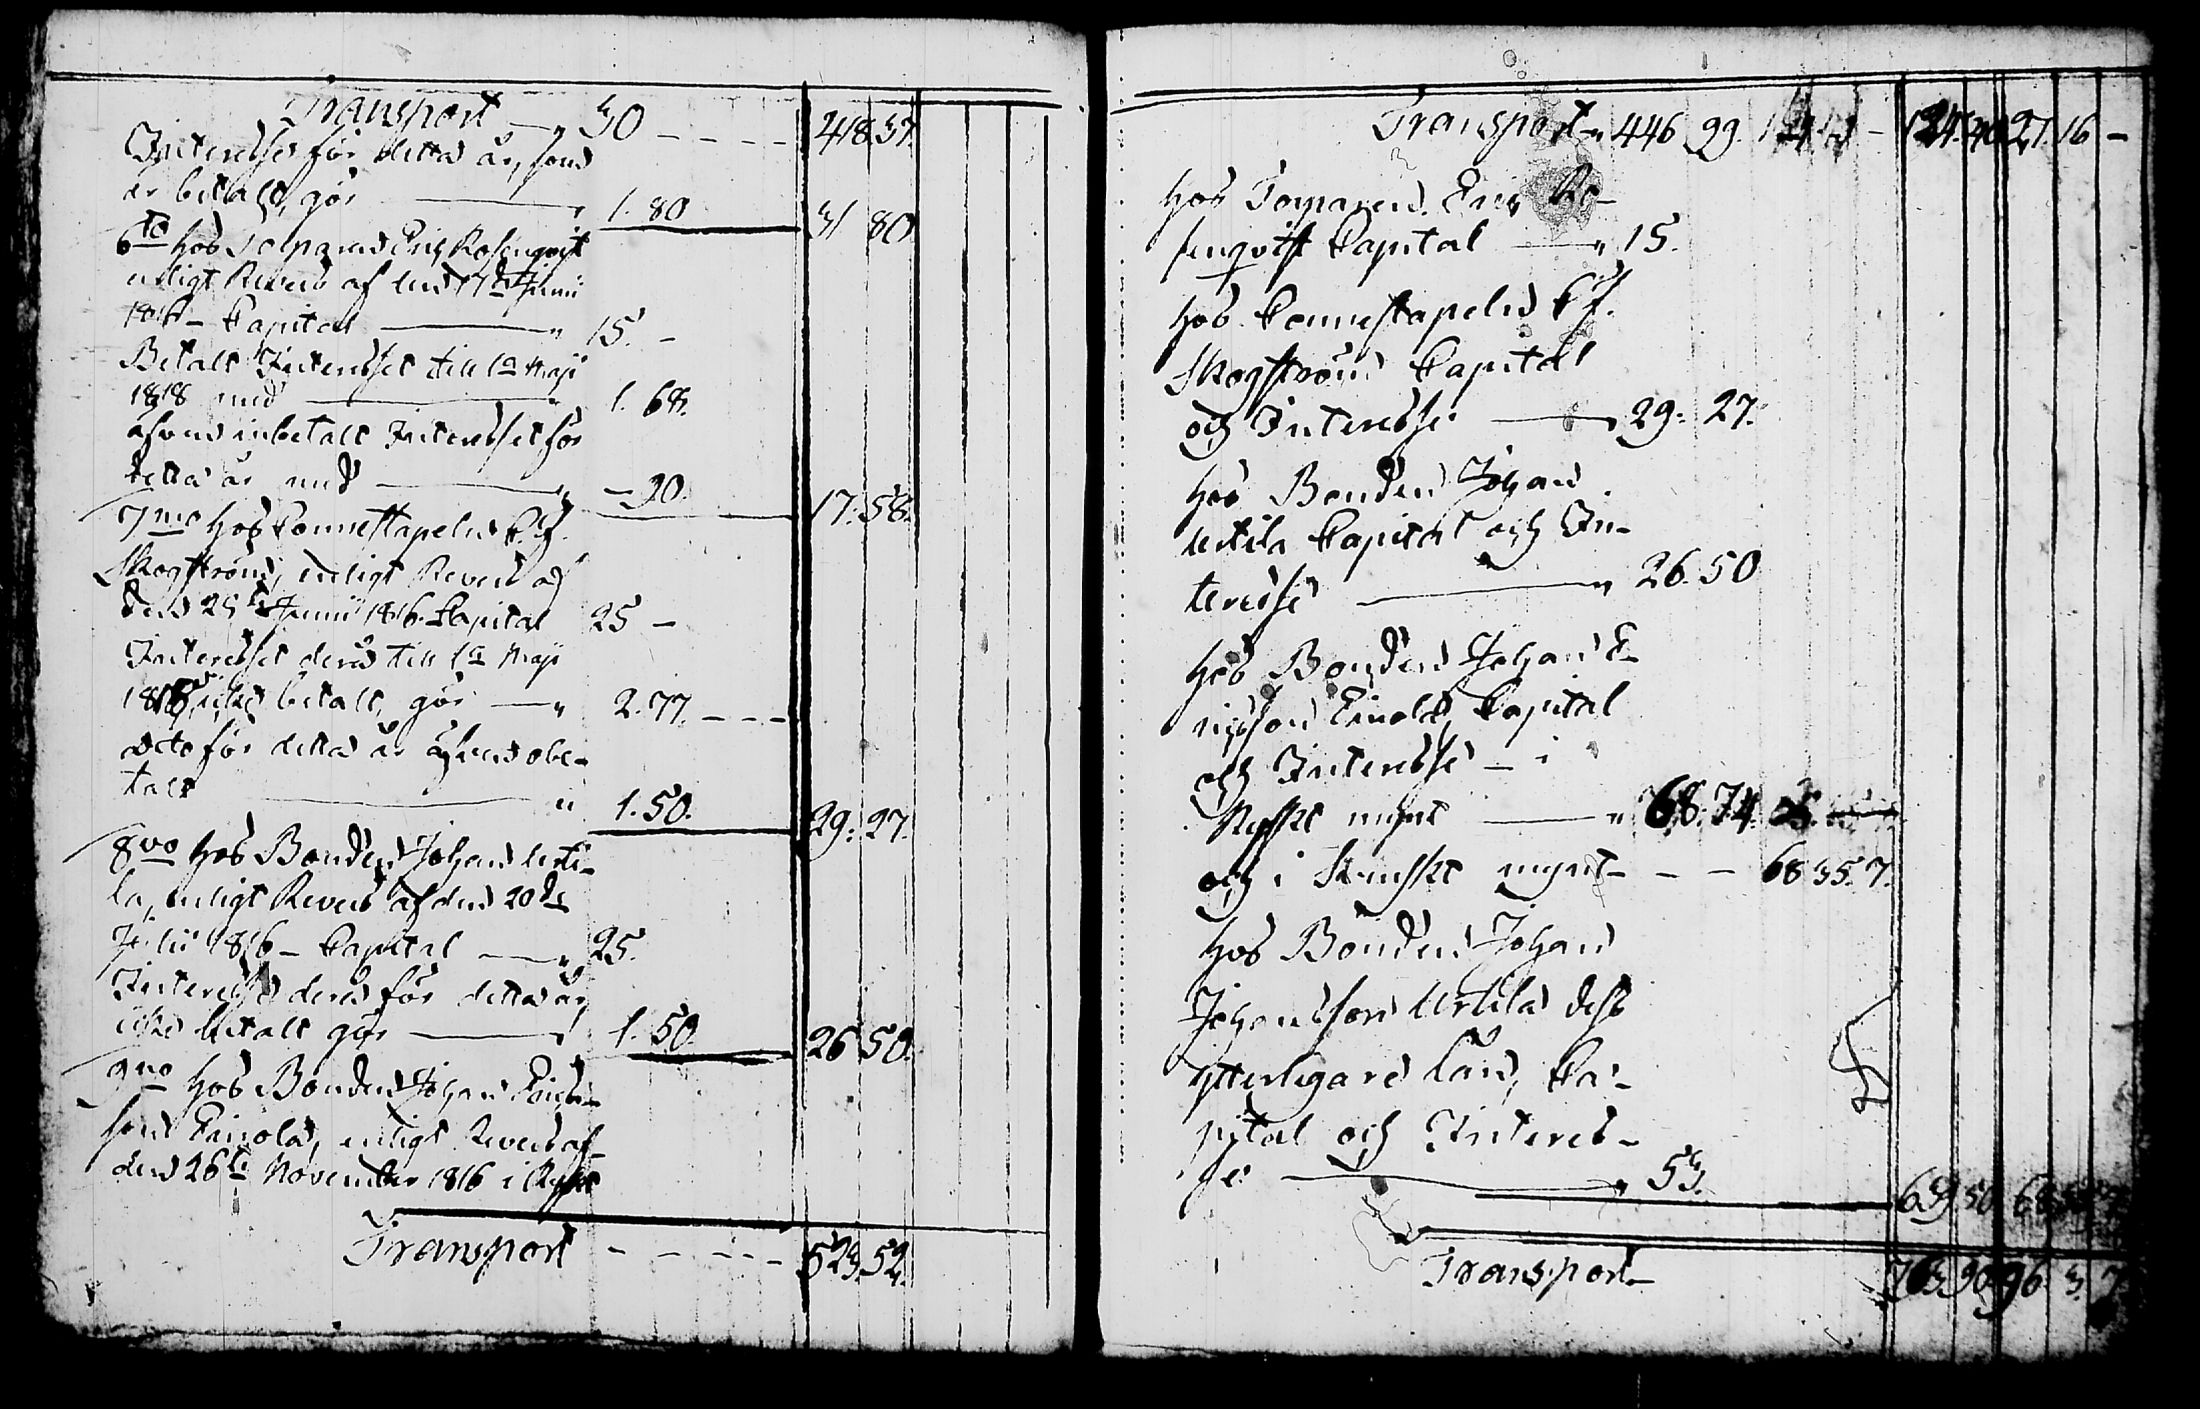 Transport — „ 30 - - - - 418. 37.
Interesse för detta år, som
är betalt, gör — „ 1. 80 31 80
6to Hos Torparen Eric Rosenqvist
enligt Revers af den 17de Junii
1816 - Capital — „ 15. -
Betalt Interesset till 1a Maji
1818 med — 1. 68.
äfven inbetalt Interesset för
detta år med — „ - 90. 17. 58.
7mo Hos Connestapeln C. J.
Skogström, enligt Revers af
den 25te Junii 1816. Capital 25 -
Interesset deraf till 1a Maji
1818 icke betalt, gör — „ 2. 77. - - -
dito för detta år äfven obe-
talt — „ 1. 50. 29. 27.
8vo Hos Bonden Johan Urti-
la, enligt Revers af den 20de
Julii 1816 - Capital — „ 25.
Interesse deraf för detta år,
icke betalt gör — „ 1. 50 26 50.
9no Hos Bonden Johan Erics-
son Einola, enligt Revers af
den 26te November 1816 i Ryskt
Transport - - - - - 523. 52.
Transport „ 446 99. 27. 16 -
Hos Torparen Eric Ro-
senqvist Capital — „ 15.
Hos Connestapeln C J.
Skogström Capital
och Interesse — „ 29. 27.
Hos Bonden Johan
Urtila Capital och In-
teresse — „ 26. 50
Hos Bonden Johan E-
ricsson Einola, Capital
och Interesse - i
Ryskt mynt — „ 68. 74.
och i Svenskt mynt - - - 68 35. 7.
Hos Bonden Johan
Johansson Urtila dess
ytterligare lån, Ca-
pital och Interes-
se — „ 53.
Transport 763 90 96 3. 7